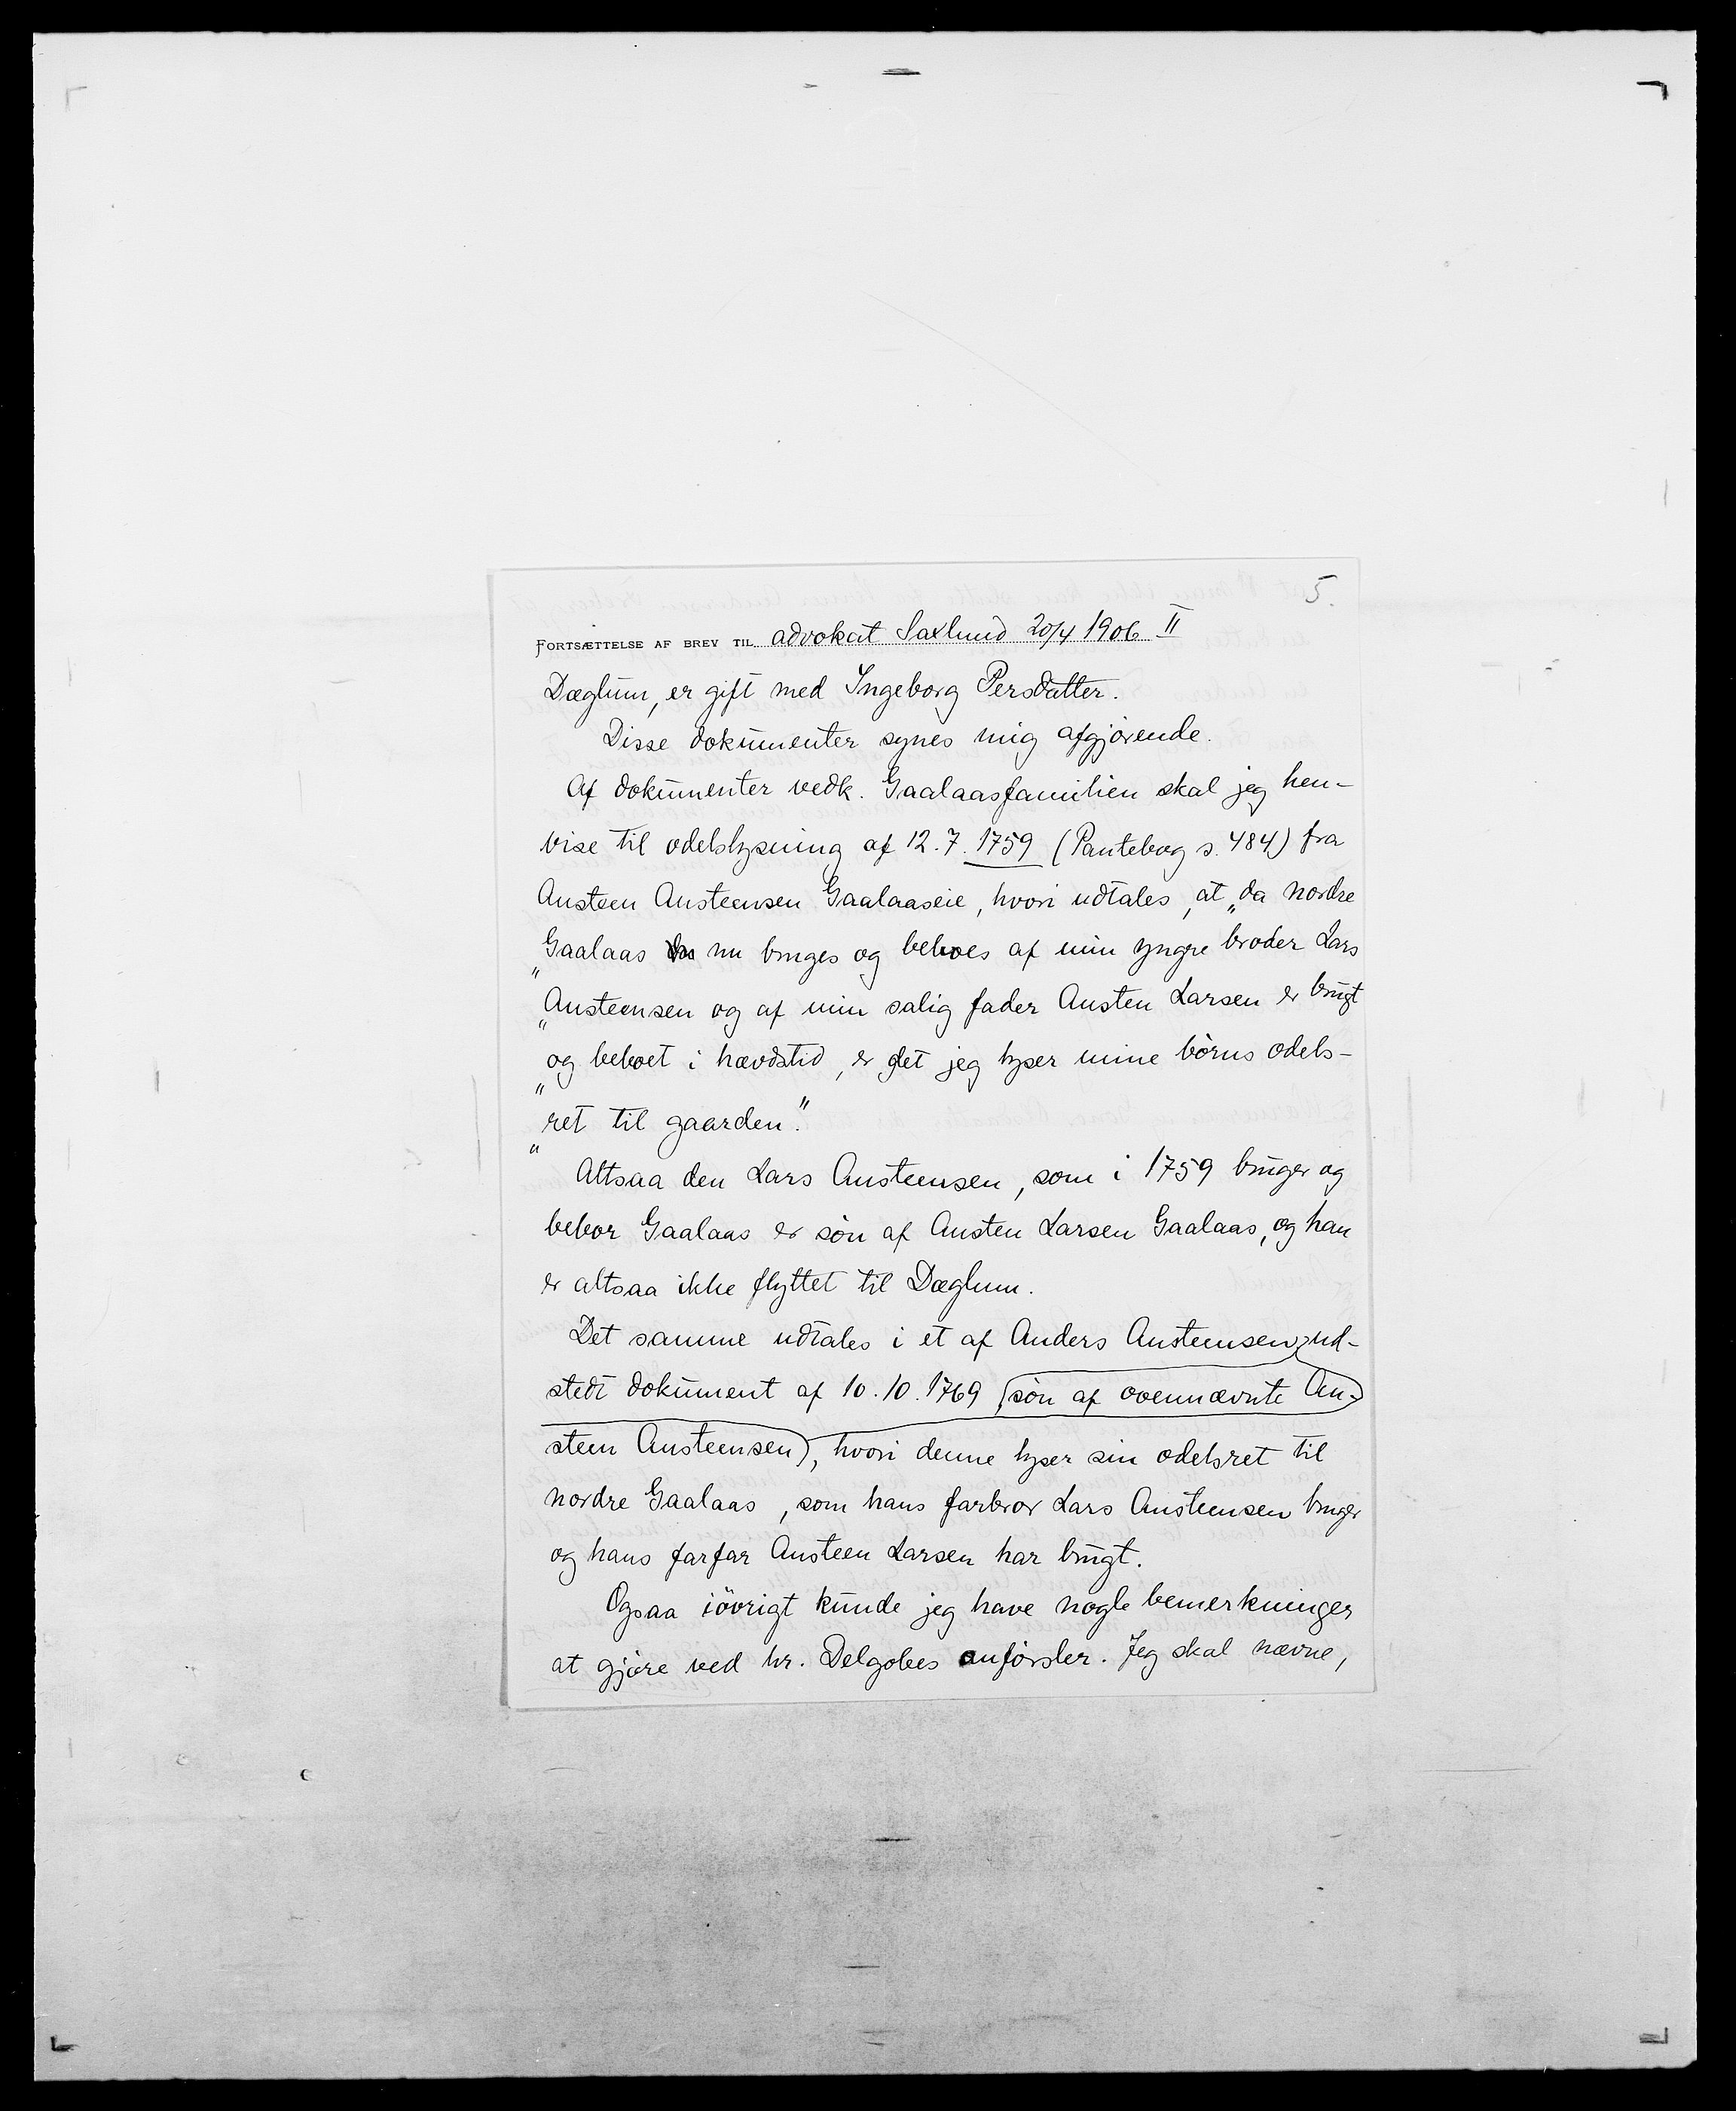 5.
FORTSÆTTELSE AF BREV TIL advokat Saxlund 20/4 1906 II
Dæglum, er gift med Ingeborg Persdatter.
Disse dokumenter synes mig afgjørende.
Af dokumenter vedk. Gaalaasfamilien skal jeg hen-
vise til odelslysning af 12.7.1759 (Pantebog s. 484) fra
Austeen Austeensen Gaalaaseie, hvori udtales, at „da nordre
„Gaalaas nu bruges og beboes af min yngre broder Lars
„Austeensen og af min salig fader Austen Larsen er brugt
„og beboet i hævdstid, er det jeg lyser mine børns odels-
„ret til gaarden".
Altsaa den Lars Austeensen, som i 1759 bruger og
bebor Gaalaas er søn af Austen Larsen Gaalaas, og han
er altsaa ikke flyttet til Dæglum.
Det samme udtales i et af Anders Austeensen ud-
stedt dokument af 10.10.1769 (søn af ovennævnte Au-
steen Austeensen), hvori denne lyser sin odelsret til
nordre Gaalaas, som hans farbror Lars Austeensen bruger
og hans farfar Austeen Larsen har brugt.
Ogsaa iøvrigt kunde jeg have nogle bemerkninger
at gjøre ved hr. Delgobes anførsler. Jeg skal nævne,